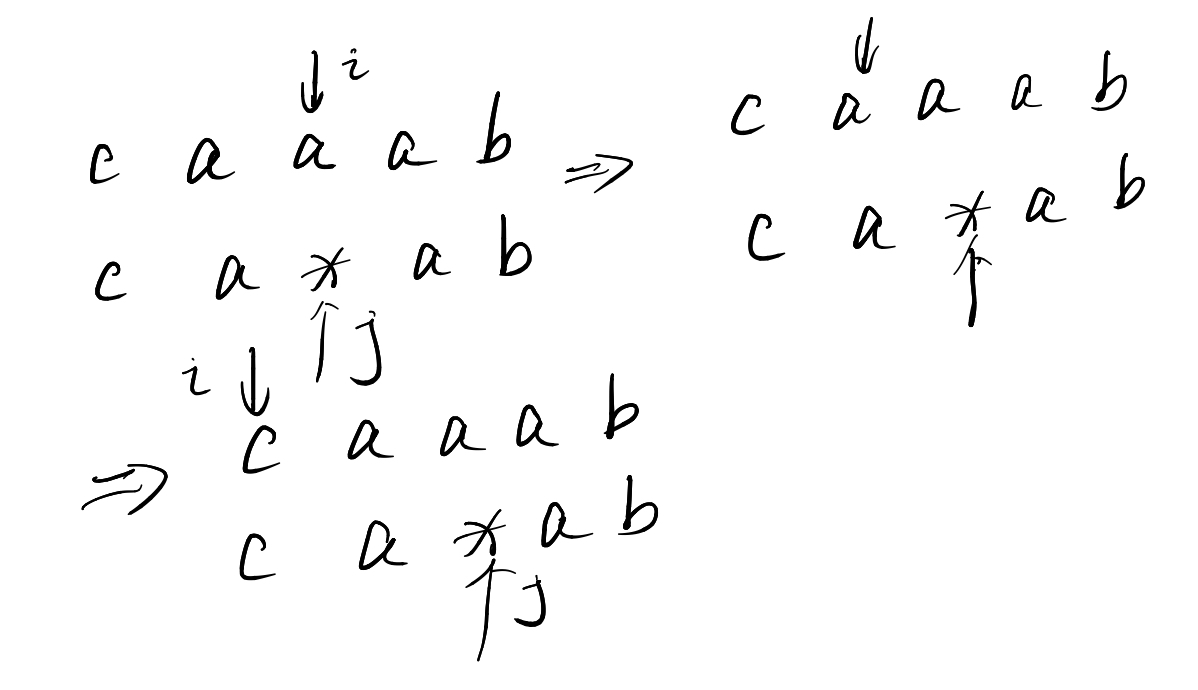 ↓ i
c a a a b
c a * a b
↑ j
⇒
↓
c a a a b
c a * a b
↑
⇒
i ↓
c a a a b
c a * a b
↑ j